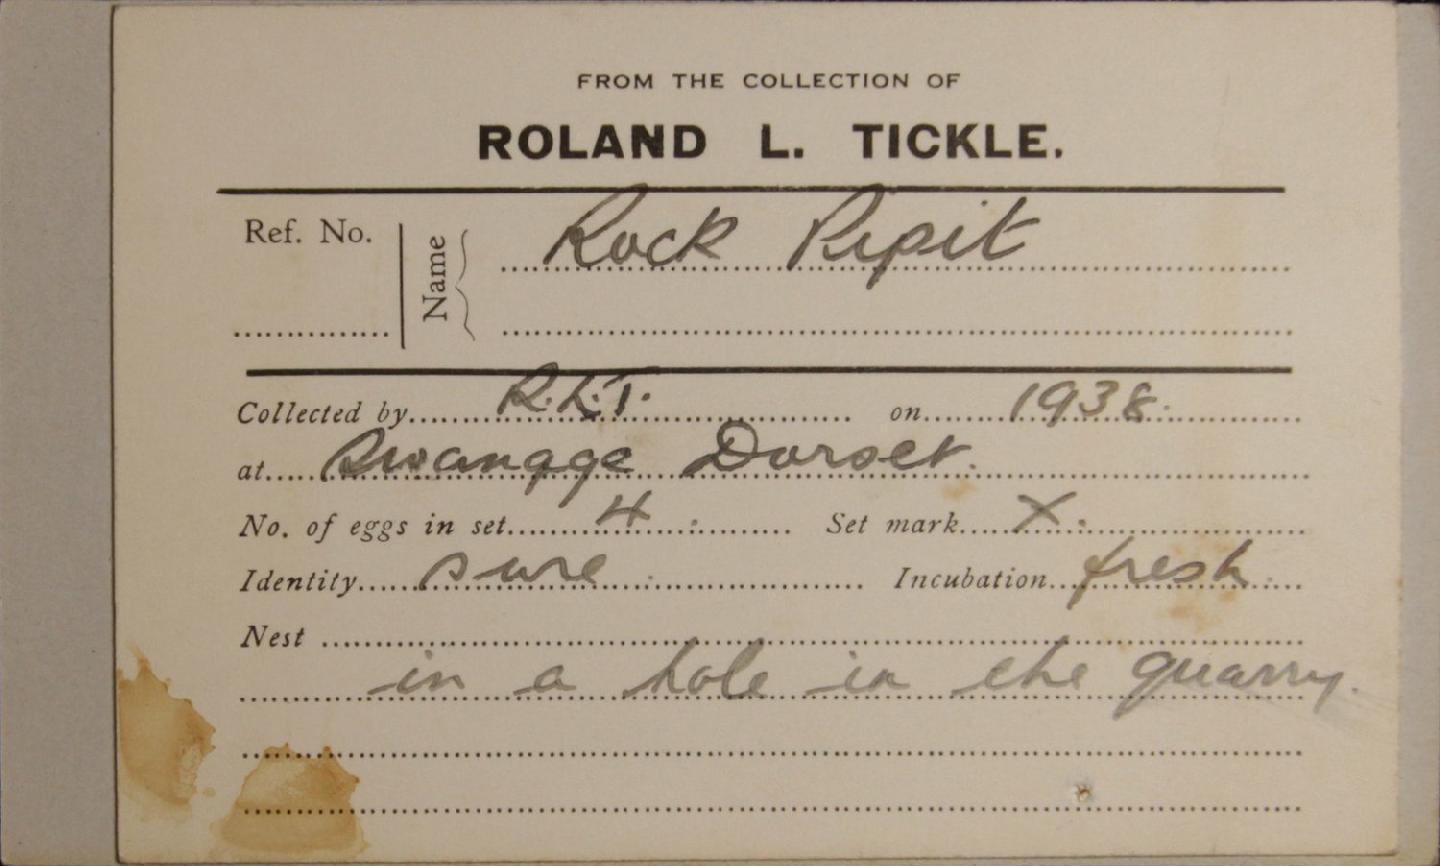 FROM THE COLLECTION OF
ROLAND L. TICKLE.
Ref. No. Name Rock Pipit
Collected by R.L.T. on 1938.
at Swanage Dorset.
No. of eggs in set 4. Set mark X.
Identity sure. Incubation fresh.
Nest
in a hole in the quarry.